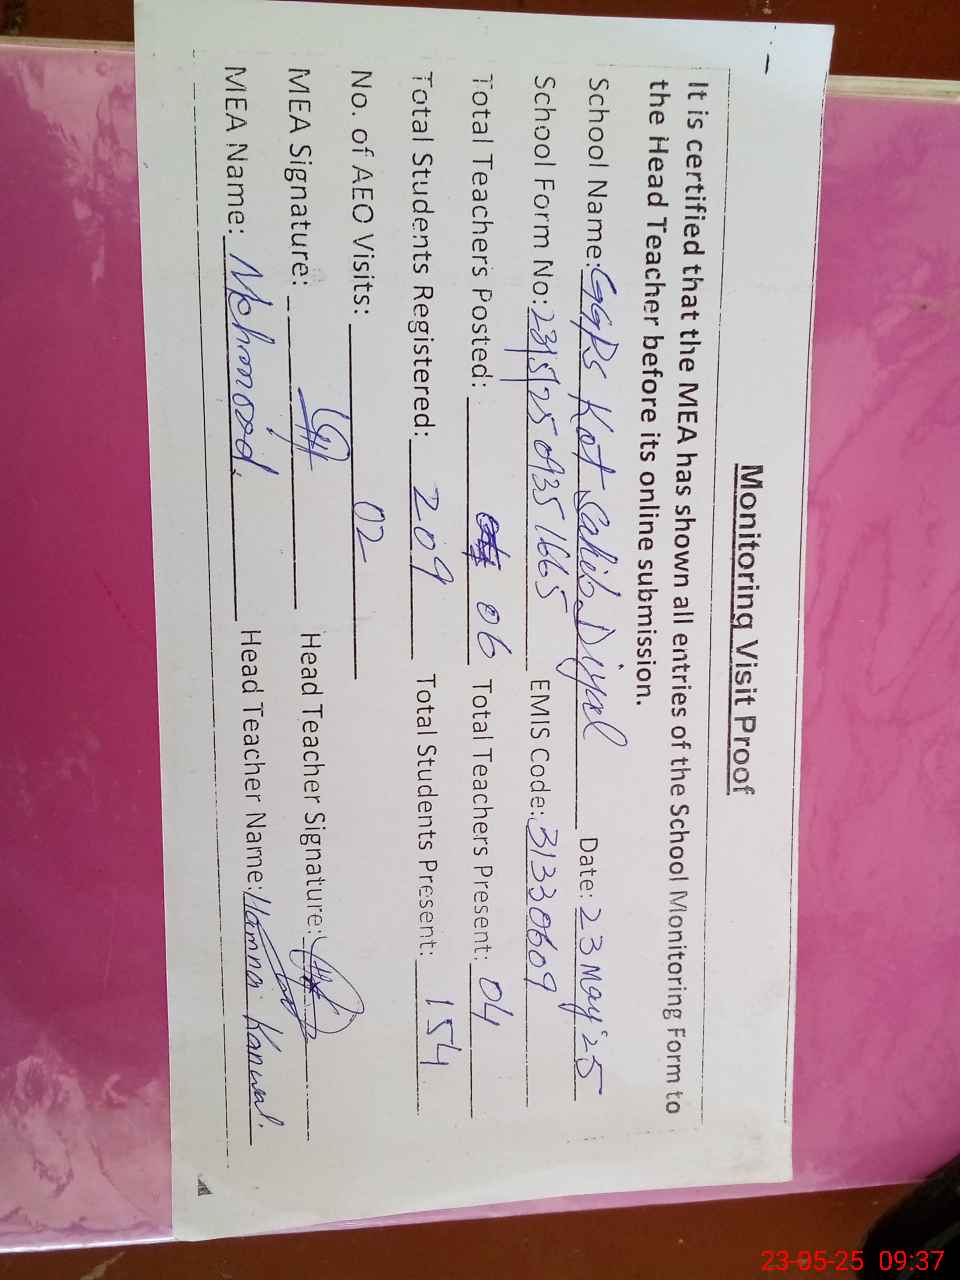 Monitoring Visit Proof
It is certified that the MEA has shown all entries of the School Monitoring Form to
the Head Teacher before its online submission.
School Name: GGPS Kot Sahib Diyal Date: 23 May'25
School Form No: 23/5/25 09351665 EMIS Code: 31330609
Total Teachers Posted: 06 Total Teachers Present: 04
Total Students Registered: 209 Total Students Present: 154
No. of AEO Visits: 02
MEA Signature: Head Teacher Signature:
MEA Name: Mehmood. Head Teacher Name: Hamna Kanwal.
23-05-25 09:37